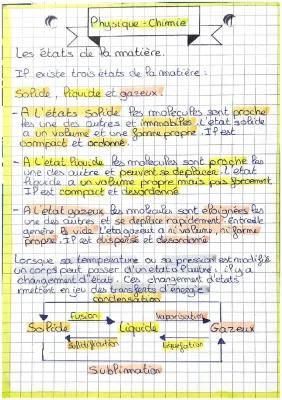 Physique - Chimie
Les états de la matière.
Il existe trois états de la matière :
Solide, liquide et gazeux
- A l'états solide les molécules sont proche les
une des autres et immobiles. L'état solide
a un volume et une forme propre. Il est
compact et ordonné.
- A l'état liquide les molécules sont proche les
une des autre et peuvent se déplacer. L'état
liquide a un volume propre mais pas forcément
Il est compact et désordonné
- A l'état gazeux les molécules sont éloignées les
une des autres et se déplace rapidement. Entre elle
génère le vide. L'état gazeux a ni volume, ni forme
propre. Il est dispersé et désordonné
Lorsque sa température ou sa pression est modifié
un corps peut passer d'un état à l'autre : il y a
changement d'état. Ces changement d'états
mettent en jeu des transferts d'énergie :
condensation
Fusion vaporisation
Solide Liquide Gazeux
Solidification Liquéfaction
Sublimation